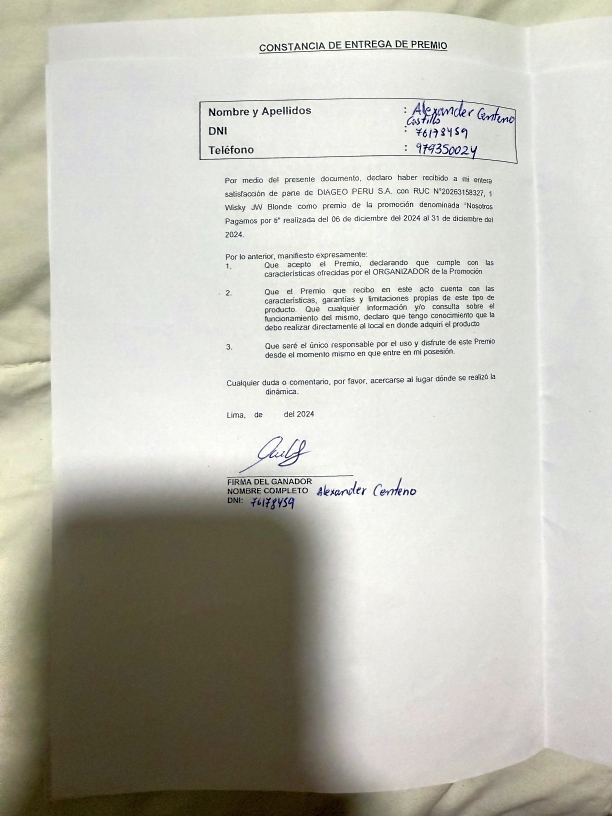 CONSTANCIA DE ENTREGA DE PREMIO
Nombre y Apellidos : Alexander Centeno
Castillo
DNI : 76178459
Teléfono : 979350024
Por medio del presente documento, declaro haber recibido a mi entera
satisfacción de parte de DIAGEO PERU S.A. con RUC N°20263158327, 1
Wisky JW Blonde como premio de la promoción denominada "Nosotros
Pagamos por ti" realizada del 06 de diciembre del 2024 al 31 de diciembre del
2024.
Por lo anterior, manifiesto expresamente:
1. Que acepto el Premio, declarando que cumple con las
características ofrecidas por el ORGANIZADOR de la Promoción
2. Que el Premio que recibo en este acto cuenta con las
características, garantías y limitaciones propias de este tipo de
producto. Que cualquier información y/o consulta sobre el
funcionamiento del mismo, declaro que tengo conocimiento que la
debo realizar directamente al local en donde adquirí el producto
3. Que seré el único responsable por el uso y disfrute de este Premio
desde el momento mismo en que entre en mi posesión.
Cualquier duda o comentario, por favor, acercarse al lugar dónde se realizó la
dinámica.
Lima, de del 2024
FIRMA DEL GANADOR
NOMBRE COMPLETO Alexander Centeno
DNI: 76178459